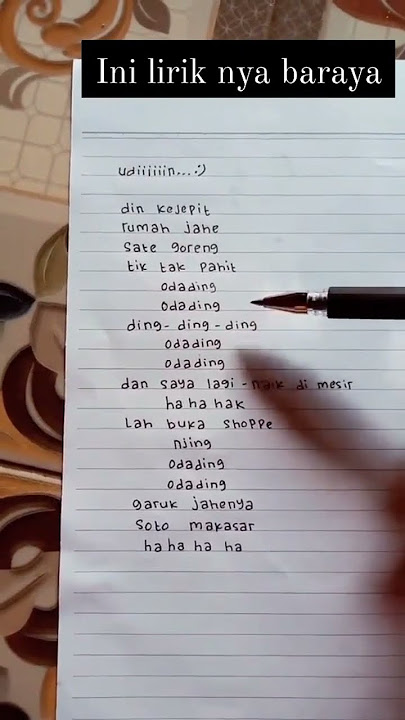 Ini lirik nya baraya
udiiiiiin...:)
din kejepit
rumah jahe
sate goreng
tik tak pahit
odading
odading
ding - ding - ding
odading
odading
dan saya lagi - naik di mesir
ha ha hak
Lah buka shoppe
njing
odading
odading
garuk jahenya
soto makasar
ha ha ha ha